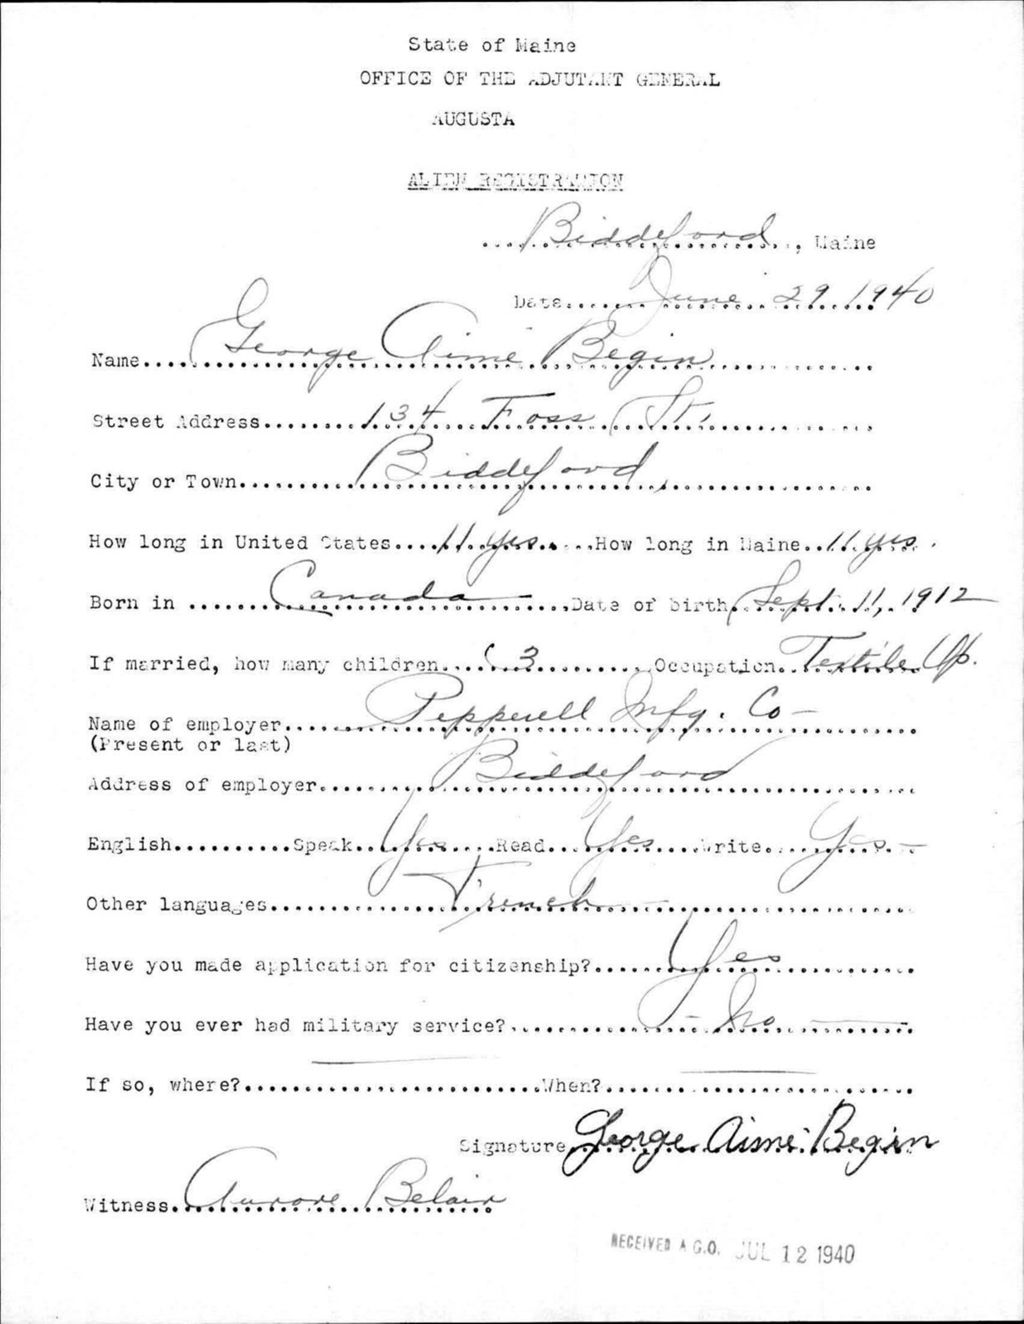 State of Maine
OFFICE OF THE ADJUTANT GENERAL
AUGUSTA
ALIEN REGISTRATION
Biddeford, Maine
Date June 29, 1940
Name George Aimé Begin
Street Address 134 Foss St.
City or Town Biddeford,
How long in United States 11 yrs. How long in Maine 11 yrs.
Born in Canada Date of birth Sept. 11, 1912
If married, how many children 3 Occupation Textile Op.
Name of employer Pepperell Mfg. Co -
(Present or last)
Address of employer Biddeford
English Speak Yes Read Yes Write Yes -
Other languages - French -
Have you made application for citizenship? Yes
Have you ever had military service? - No -
If so, where? — When? —
Signature George Aimé Begin
Witness Aurore Belair
RECEIVED A.G.O. JUL 12 1940